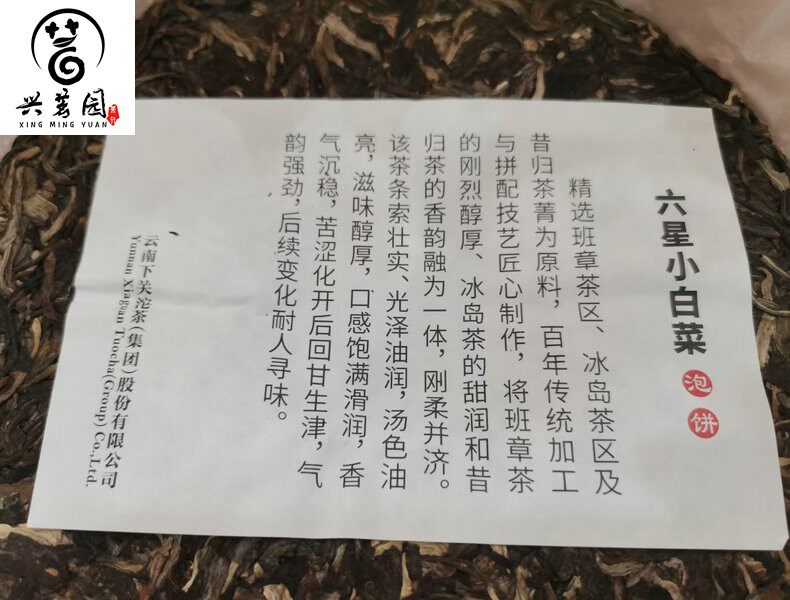 兴茗园
XING MING YUAN
六星小白菜 泡饼
精选班章茶区、冰岛茶区及
昔归茶菁为原料，百年传统加工
与拼配技艺匠心制作，将班章茶
的刚烈醇厚、冰岛茶的甜润和昔
归茶的香韵融为一体，刚柔并济。
该茶条索壮实、光泽油润，汤色油
亮，滋味醇厚，口感饱满滑润，香
气沉稳，苦涩化开后回甘生津，气
韵强劲，后续变化耐人寻味。
云南下关沱茶(集团)股份有限公司
Yunnan Xiaguan Tuocha(Group) Co.,Ltd.